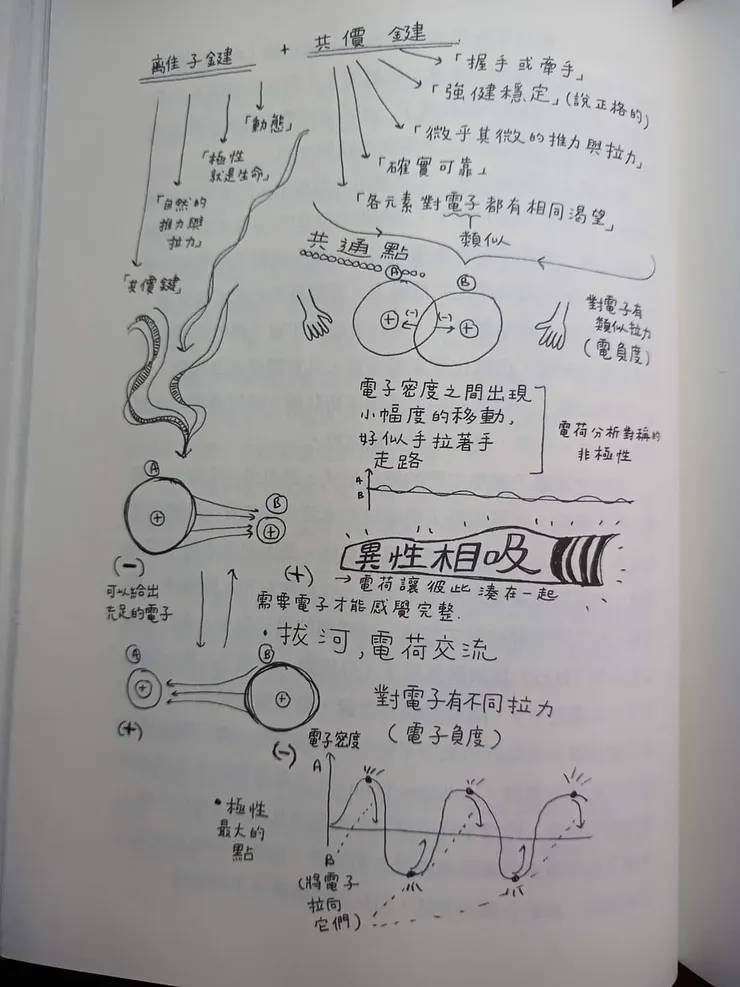 離子鍵 + 共價鍵
「握手或牽手」
「強健穩定」(說正格的)
「微乎其微的推力與拉力」
「確實可靠」
「各元素對電子都有相同渴望」
類似
「動態」
「極性
就是生命」
「自然的
推力與
拉力」
「共價鍵」
共通點
A
B
(-)
(-)
+
+
對電子有
類似拉力
(電負度)
電子密度之間出現
小幅度的移動,
好似手拉著手
走路
電荷分析對稱的
非極性
A
B
異性相吸
→ 電荷讓彼此湊在一起
需要電子才能感覺完整.
A
+
(-)
B
+
(+)
可以給出
充足的電子
• 拔河,電荷交流
A
+
(+)
B
+
(-)
對電子有不同拉力
(電子負度)
電子密度
A
B
• 極性
最大的
點
(將電子
拉向
它們)